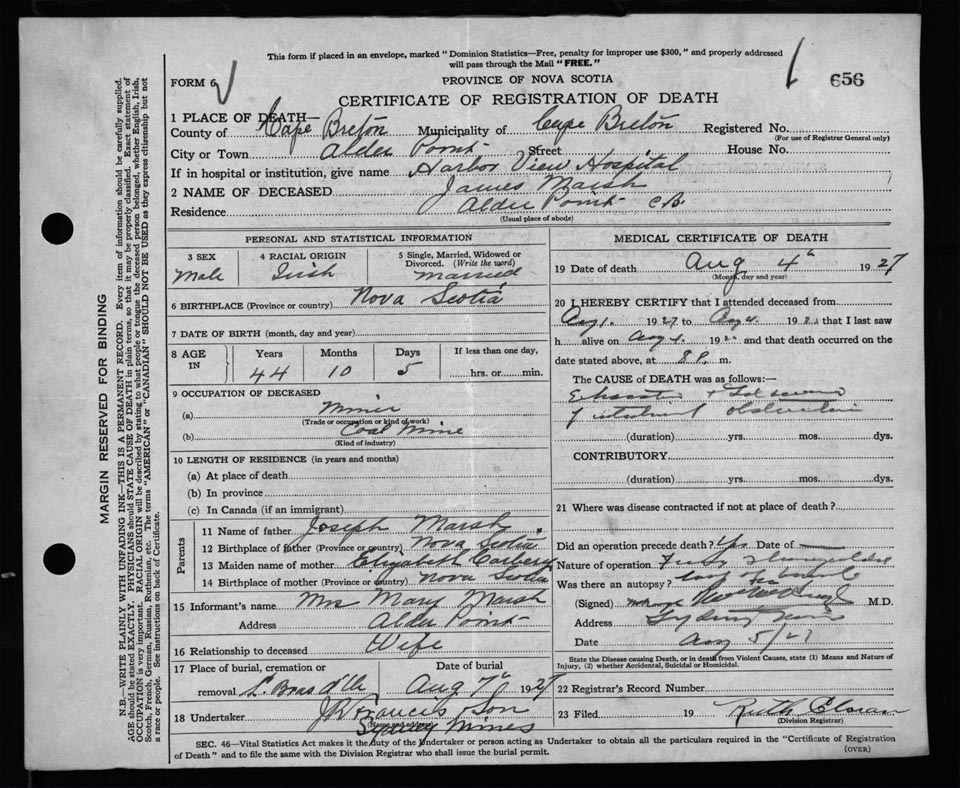 This form if placed in an envelope, marked "Dominion Statistics—Free, penalty for improper use $300," and properly addressed
will pass through the Mail "FREE."
FORM 6
PROVINCE OF NOVA SCOTIA
656
CERTIFICATE OF REGISTRATION OF DEATH
1 PLACE OF DEATH—
County of Cape Breton Municipality of Cape Breton Registered No.
(For use of Registrar General only)
City or Town Alder Point Street House No.
If in hospital or institution, give name Harbor View Hospital
2 NAME OF DECEASED James Marsh
Residence Alder Point C.B.
(Usual place of abode)
PERSONAL AND STATISTICAL INFORMATION
3 SEX 4 RACIAL ORIGIN 5 Single, Married, Widowed or Divorced. (Write the word)
Male Irish Married
6 BIRTHPLACE (Province or country) Nova Scotia
7 DATE OF BIRTH (month, day and year)
8 AGE IN Years Months Days If less than one day,
44 10 5 hrs. or min.
9 OCCUPATION OF DECEASED
(a) Miner
(Trade or occupation or kind of work)
(b) Coal Mine
(Kind of industry)
10 LENGTH OF RESIDENCE (in years and months)
(a) At place of death
(b) In province
(c) In Canada (if an immigrant)
Parents
11 Name of father Joseph Marsh
12 Birthplace of father (Province or country) Nova Scotia
13 Maiden name of mother Elizabeth
14 Birthplace of mother (Province or country) Nova Scotia
15 Informant's name Mrs Mary Marsh
Address Alder Point
16 Relationship to deceased Wife
17 Place of burial, cremation or Date of burial
removal L. Bras d'Or Aug 7th 1927
18 Undertaker J R Francis & Son
(Name and address)
Sydney Mines
MEDICAL CERTIFICATE OF DEATH
19 Date of death Aug 4th 1927
(Month, day and year)
20 I HEREBY CERTIFY that I attended deceased from
Aug 1. 1927 to Aug 4. 192 that I last saw
h alive on Aug 4. 192 and that death occurred on the
date stated above, at 8 P. m.
The CAUSE OF DEATH was as follows:—
obstruction
(duration) yrs. mos. dys.
CONTRIBUTORY.
(duration) yrs. mos. dys.
21 Where was disease contracted if not at place of death?
Did an operation precede death? Yes Date of
Nature of operation
Was there an autopsy?
(Signed) M.D.
Address Sydney Mines
Date Aug 5/27
State the Disease causing Death, or in death from Violent Causes, state (1) Means and Nature of
Injury, (2) whether Accidental, Suicidal or Homicidal.
22 Registrar's Record Number
23 Filed 19 Ruth
(Division Registrar)
SEC. 46—Vital Statistics Act makes it the duty of the Undertaker or person acting as Undertaker to obtain all the particulars required in the "Certificate of Registration
of Death" and to file the same with the Division Registrar who shall issue the burial permit.
(OVER)
MARGIN RESERVED FOR BINDING
N.B.—WRITE PLAINLY WITH UNFADING INK—THIS IS A PERMANENT RECORD. Every item of information should be carefully supplied.
AGE should be stated EXACTLY. PHYSICIANS should STATE CAUSE OF DEATH in plain terms, so that it may be properly classified. Exact statement of
OCCUPATION is very important. RACIAL ORIGIN will be described by stating to what people or tongue the deceased person belonged, whether English, Irish,
Scotch, French, German, Russian, Ruthenian, etc. The terms "AMERICAN" or "CANADIAN" SHOULD NOT BE USED as they express citizenship but not
a race or people. See instructions on back of Certificate.